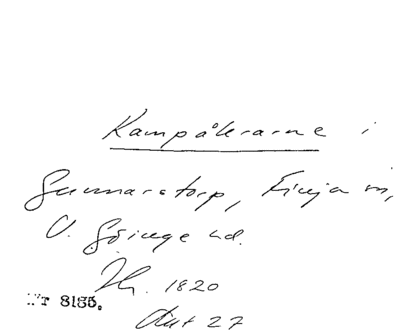 Kampåkrarne i
Gunnarstorp, Finja sn,
V. Göinge hd.
Hr. 1820
Nr 8135.
Akt 27